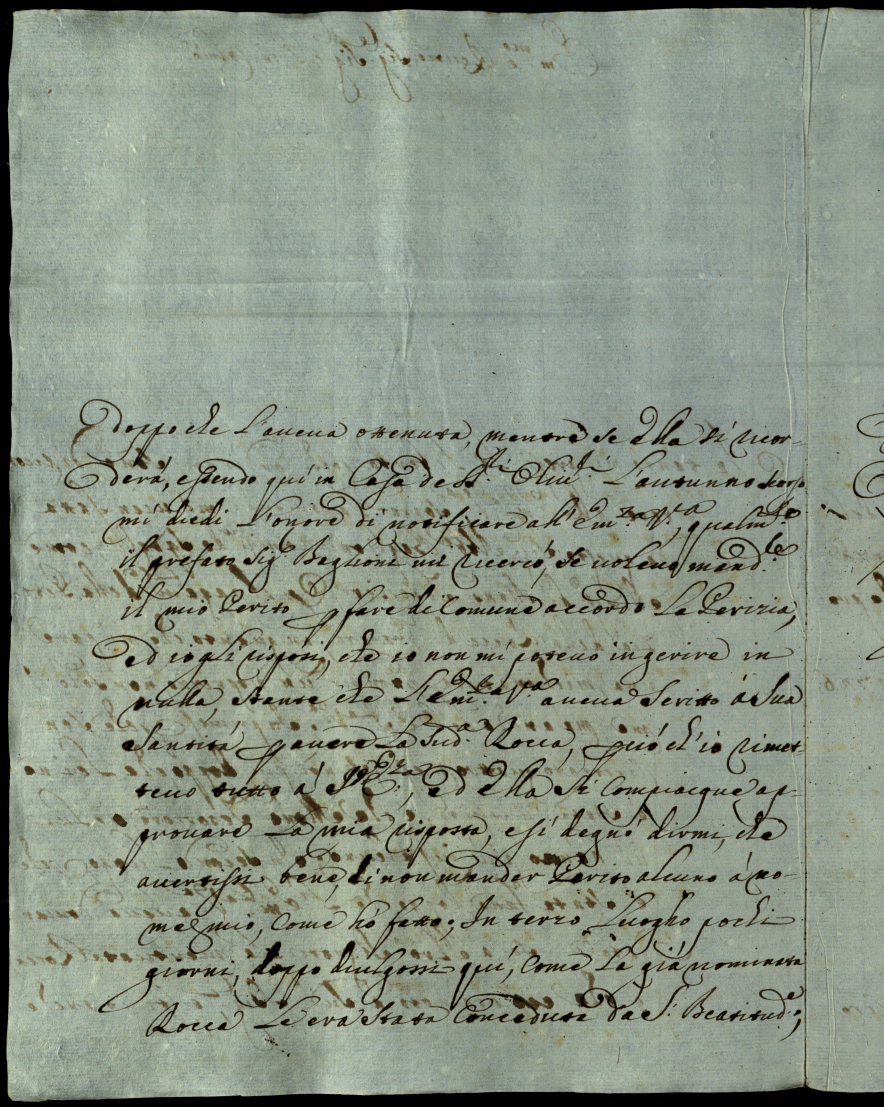 doppo che l'aueua ottenuta, mentre se Ella si ricor-
derà, essendo quì in Casa de SS.ri Oliu.ri L'autunno scorso
mi diedi l'onore di notificare all' Em.za V.a, qualm.te
il prefato Sig.r Baglioni mi ricercò, se uoleuo mand.le
il mio Perito p fare di comune accordo La Perizia,
ed io gli risposi, che io non mi poteuo ingerire in
nulla, stante che L'Em.za V.a aueua scritto à Sua
Santità p auere La sud.a Rocca, p ciò ch'io rimet-
teuo tutto a' V.E.za, ed Ella si compiacque ap-
prouare La mia risposta, e si degnò dirmi, che
auertissi bene, di non mandar Perito alcuno à no-
me mio, come hò fatto; In terzo Luogho pochi
giorni, doppo diuulgossi quì, come La già nominata
Rocca Le era stata Conceduta da S. Beatitud.e;